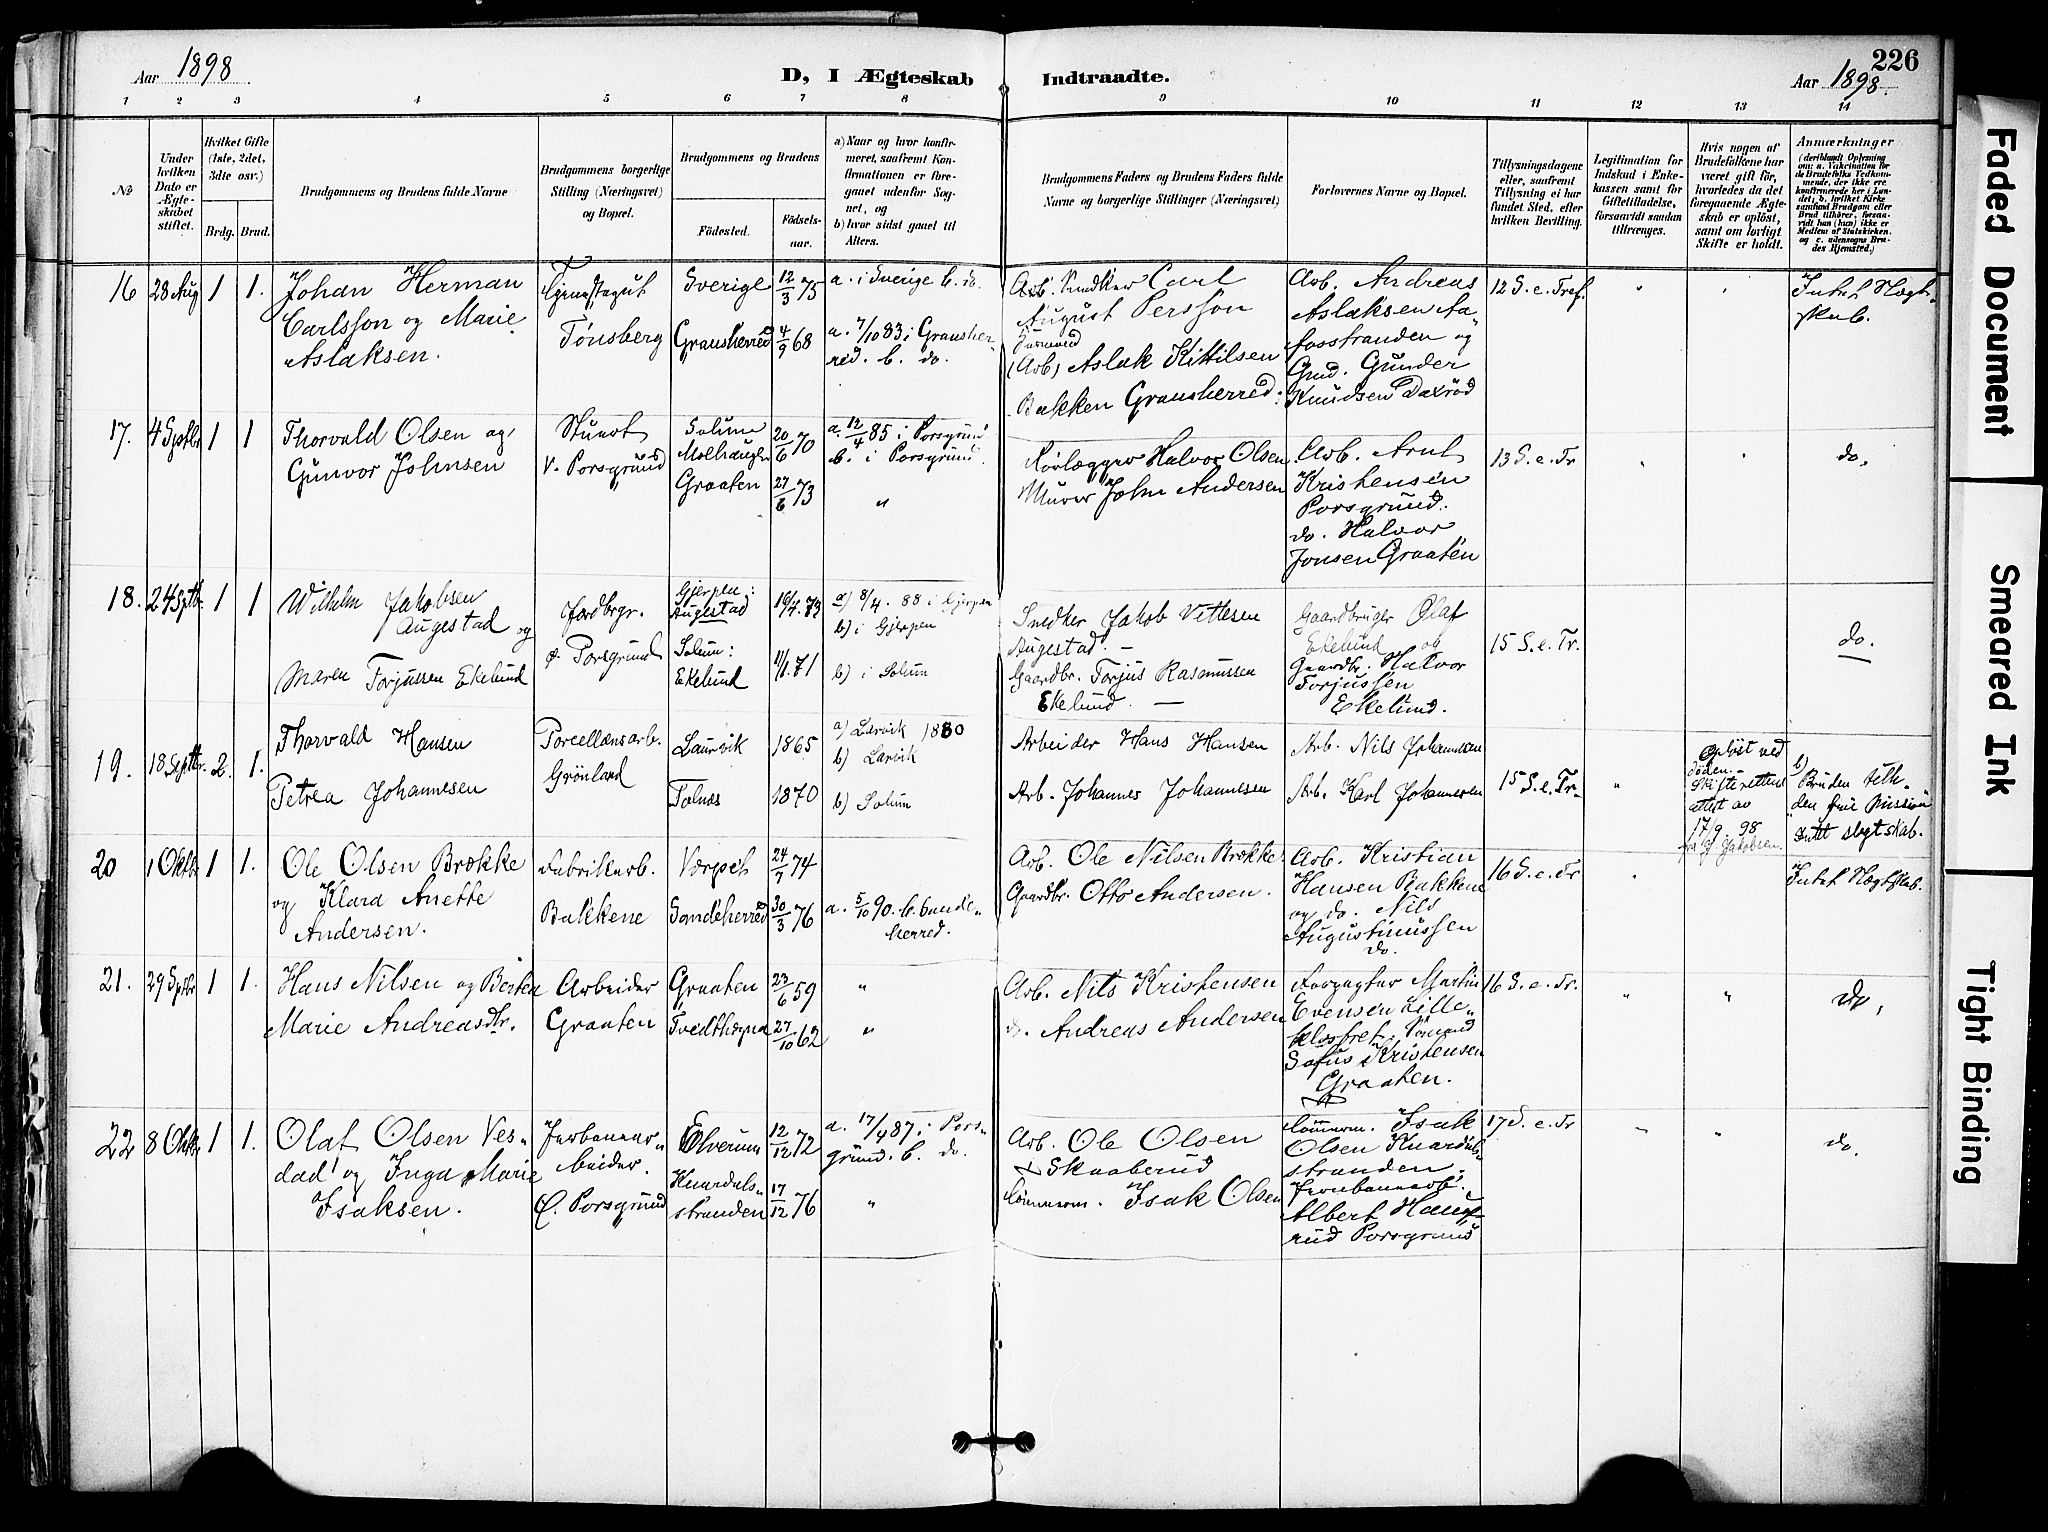 226
Aar 1898
D, I Ægteskab Indtraadte.
Aar 1898.
1 2 3 4 5 6 7 8 9 10 11 12 13 14
No
Under hvilken Dato er Ægteskabet stiftet.
Hvilket Gifte (1ste, 2det, 3dte osv.)
Brdg. Brud.
Brudgommens og Brudens fulde Navne
Brudgommens borgerlige Stilling (Næringsvei) og Bopæl.
Brudgommens og Brudens
Fødested.
Fødselsaar.
a) Naar og hvor konfirmeret, saafremt Konfirmationen er foregaaet udenfor Sognet, og
b) hvor sidst gaaet til Alters.
Brudgommens Faders og Brudens Faders fulde Navne og borgerlige Stillinger (Næringsvei)
Forlovernes Navne og Bopæl.
Tillysningsdagene eller, saafremt Tillysning ei har fundet Sted, efter hvilken Bevilling.
Legitimation for Indskud i Enkekassen samt for Giftetilladelse, forsaavidt saadan tiltrænges.
Hvis nogen af Brudefolkene har været gift før, hvorledes da det foregaaende Ægteskab er opløst, samt om lovligt Skifte er holdt.
Anmærkninger
(deriblandt Oplysning om: a. Vakcination for de Brudefolks Vedkommende, der ikke ere konfirmerede her i Landet; b. hvilket Kirkesamfund Brudgom eller Brud tilhører, forsaavidt han (hun) ikke er Medlem af Statskirken, og c. udensogns Brudes Hjemsted.)
16 28 Aug 1 1.
Johan Herman
Carlsson og Marie
Aslaksen.
Tjenestegut
Tønsberg
Sverige 12/3 75
Gransherred 4/9 68
a. i Sverige b. do.
a. 7/10 83 i Gransher-
red. b. do.
Arb. Snedker Carl
August Persson
(Arb) Aslak Kittilsen
Bakken Gransherred.
Arb. Andreas
Aslaksen Aa-
fosstranden og
Gmd. Gunder
Knudsen Daxrød
12 S. e. Tref.
Intet Slægt-
skab.
17. 4 Septbr 1 1
Thorvald Olsen og
Gunvor Johnsen
Stuert
V. Porsgrund
Solum
Molhaugen 20/6 70
Graaten 27/6 73
a. 12/4 85 i Porsgrund
b. i Porsgrund.
"
Rørlægger Halvor Olsen
Murer John Andersen
Arb. Arnt
Kristensen
Porsgrund.
do. Halvor
Jonsen Graaten
13 S. e. Tr
do.
18. 24 Septbr. 1 1
Wilhelm Jakobsen
Augestad og
Maren Torjussen Ekelund
Jordbrgr.
Ø. Porsgrund
Gjerpen:
Augestad 16/7. 73
Solum:
Ekelund 11/1. 71
a) 8/4. 88 i Gjerpen
b) i Gjerpen
b) i Solum
Snedker Jakob Vetlesen
Augestad. —
Gaardbr. Torjus Rasmussen
Ekelund. —
Gaardbruger Olaf
Ekelund og
Gaardbr. Halvor
Torjussen
Ekelund.
15 S. e. Tr.
do.
19. 18 Septbr. 2. 1.
Thorvald Hansen
Petrea Johannesen
Porcellænsarb.
Grönland
Laurvik 1865
Tolnæs 1870
a) Larvik 1880
b) Larvik
b) Solum
Arbeider Hans Hansen
Arb. Johannes Johannesen
Arb. Nils Johannesen
Arb. Karl Johannesen
15 S. e. Tr.
Opløst ved
døden.
Skifterettens
attest av
17/9 98
b)
Bruden tilh.
den frie Mission
Intet slegtskab.
20 1 Oktbr 1 1.
Ole Olsen Brække
og Klara Anette
Andersen.
Fabrikarb.
Bakkene
Værpet 24/7 74
Sandeherred 30/3 76
a. 5/10 90. b. Sande-
herred.
Arb. Ole Nilsen Brække
Gaardbr. Otto Andersen.
Arb. Kristian
Hansen Bakkene
og do. Nils
Augustinussen
do.
16 S. e. Tr
Intet Slægtskab.
21. 29 Septbr 1 1.
Hans Nilsen og Berthe
Marie Andreasdtr.
Arbeider
Graaten
Graaten 23/6 59
Tvedthøgna 27/10 62
"
"
Arb. Nils Kristensen
do. Andreas Andersen
Forpagter Martin
Evensen Lille-
klostret. Sømand
Sofus Kristensen
Graaten.
16 S. e. Tr.
do,
22 8 Oktbr 1 1.
Olaf Olsen Ves-
dad og Inga Marie
Isaksen.
Jernbanear-
beider.
Ø. Porsgrund
Elverum 12/12 72
Knardals-
stranden 17/12 76
a. 17/4 87 i Pors-
grund. b. do.
"
Arb. Ole Olsen
Skaaberud
Tømmerm. Isak Olsen
Tømmerm. Isak
Olsen Knardals-
stranden.
Jernbanearb.
Albert Haug-
rud Porsgrund
17 S. e. Tr
do.
Faded Document
Smeared Ink
Tight Binding